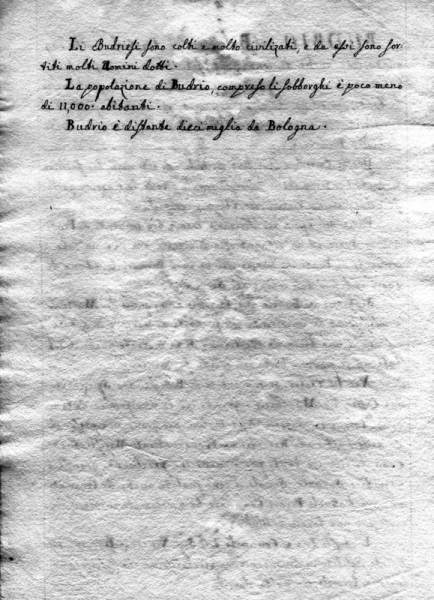 Li Budriesi sono colti e molto civilizati, e da essi sono sor-
titi molti Uomini dotti.
La popolazione di Budrio, compreso li sobborghi è poco meno
di 11,000. abitanti.
Budrio è distante dieci miglia da Bologna.